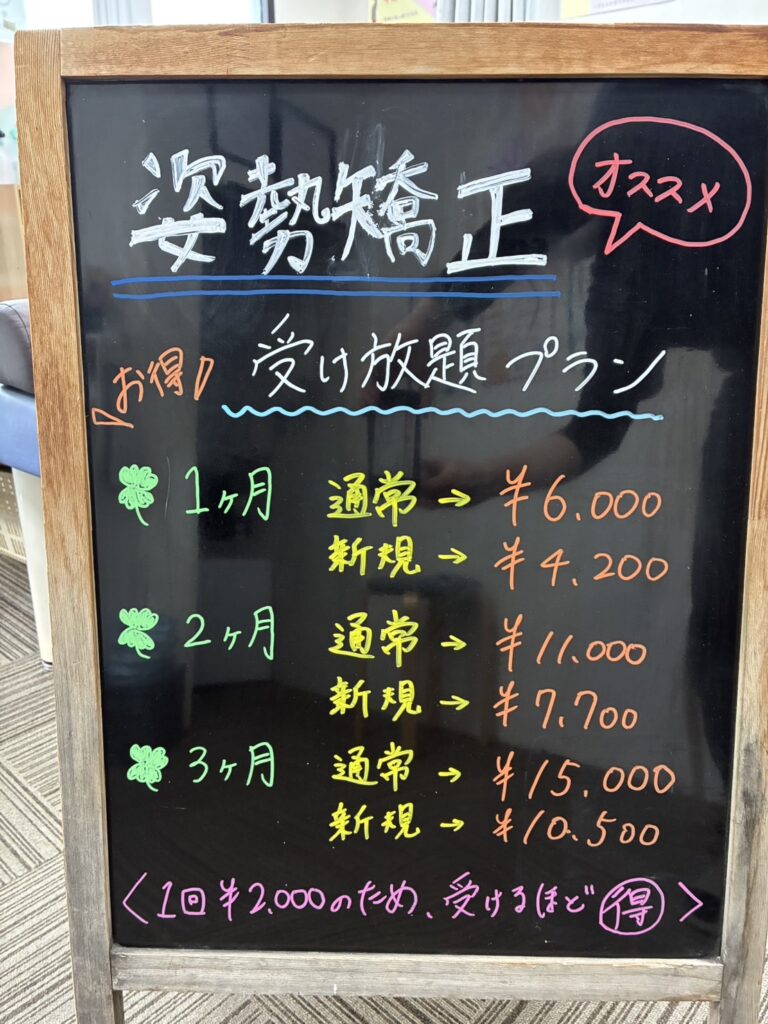 姿勢矯正
オススメ
お得
受け放題プラン
1ヶ月 通常→ ¥6.000
新規→ ¥4.200
2ヶ月 通常→ ¥11.000
新規→ ¥7.700
3ヶ月 通常→ ¥15.000
新規→ ¥10.500
〈1回¥2.000のため、受けるほど㊝〉